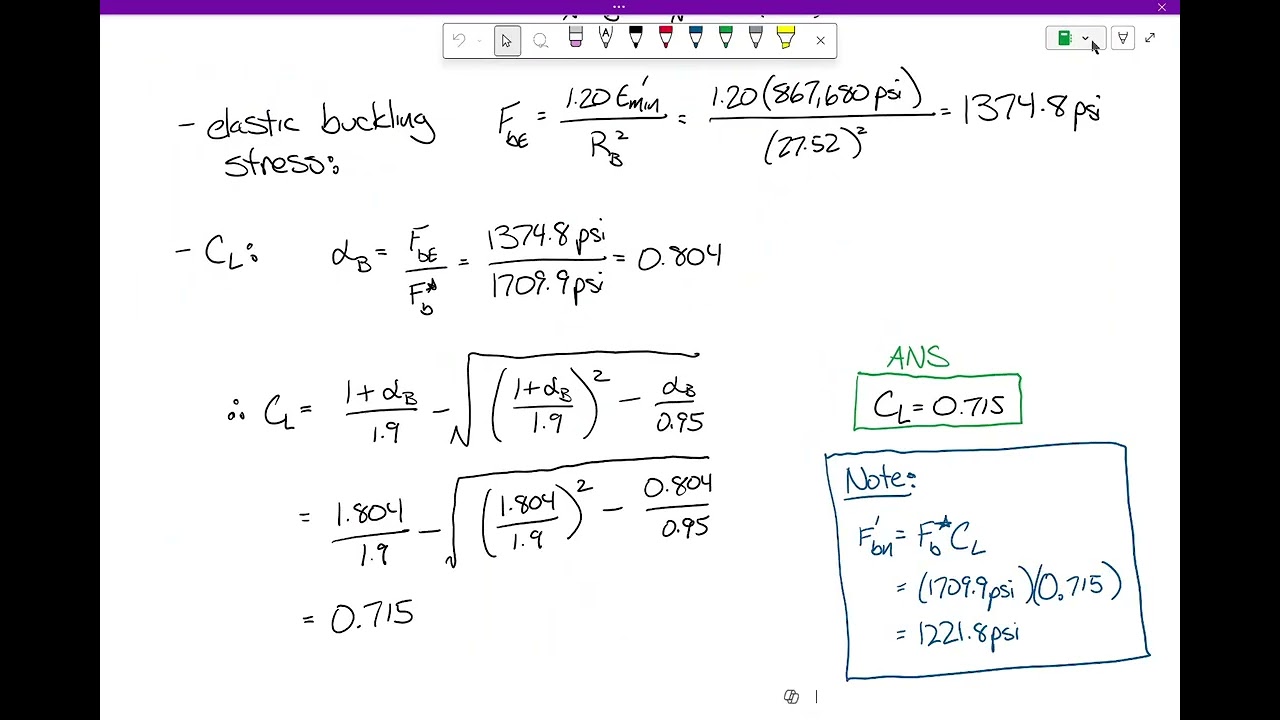 - elastic buckling stress: F_bE = 1.20 E'min / R_B² = 1.20(867,680 psi) / (27.52)² = 1374.8 psi
- C_L: α_B = F_bE / F_b* = 1374.8 psi / 1709.9 psi = 0.804
∴ C_L = (1+α_B)/1.9 - √(((1+α_B)/1.9)² - α_B/0.95)
= 1.804/1.9 - √((1.804/1.9)² - 0.804/0.95)
= 0.715
ANS
C_L = 0.715
Note:
F'_bn = F_b* C_L
= (1709.9 psi)(0.715)
= 1221.8 psi